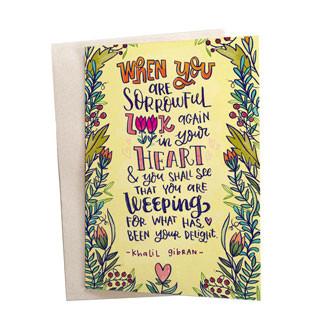 WHEN YOU
ARE
SORROWFUL
LOOK AGAIN
in your
HEART
& YOU SHALL SEE
THAT YOU ARE
WEEPING
FOR WHAT HAS
BEEN YOUR DELIGHT.
-KHALIL GIBRAN-